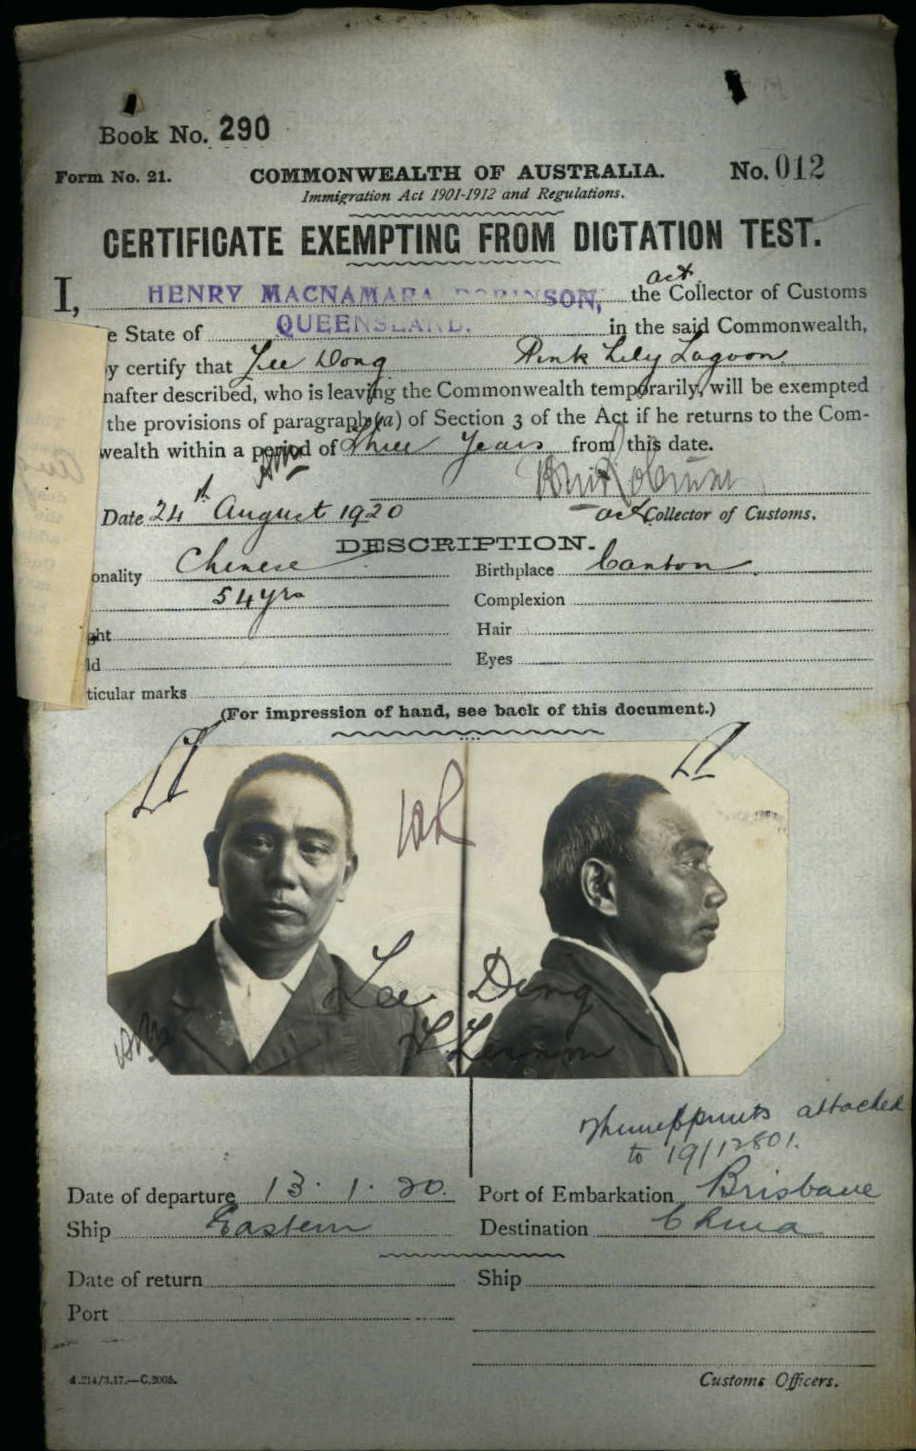 Book No. 290
Form No. 21. COMMONWEALTH OF AUSTRALIA. No. 012
Immigration Act 1901-1912 and Regulations.
CERTIFICATE EXEMPTING FROM DICTATION TEST.
act
I, HENRY MACNAMARA ROBINSON, the Collector of Customs
e State of QUEENSLAND. in the said Commonwealth,
y certify that Lee Dong Pink Lily Lagoon
nafter described, who is leaving the Commonwealth temporarily, will be exempted
the provisions of paragraph (a) of Section 3 of the Act if he returns to the Com-
wealth within a period of Three Years from this date.
Date 24th August 1920 act Collector of Customs.
DESCRIPTION.
onality Chinese Birthplace Canton
54 yrs Complexion
ght Hair
ld Eyes
ticular marks
(For impression of hand, see back of this document.)
Lee Dong
attached
to 19/12801.
Date of departure 13. 1. 20. Port of Embarkation Brisbane
Ship Eastern Destination China
Date of return Ship
Port
Customs Officers.